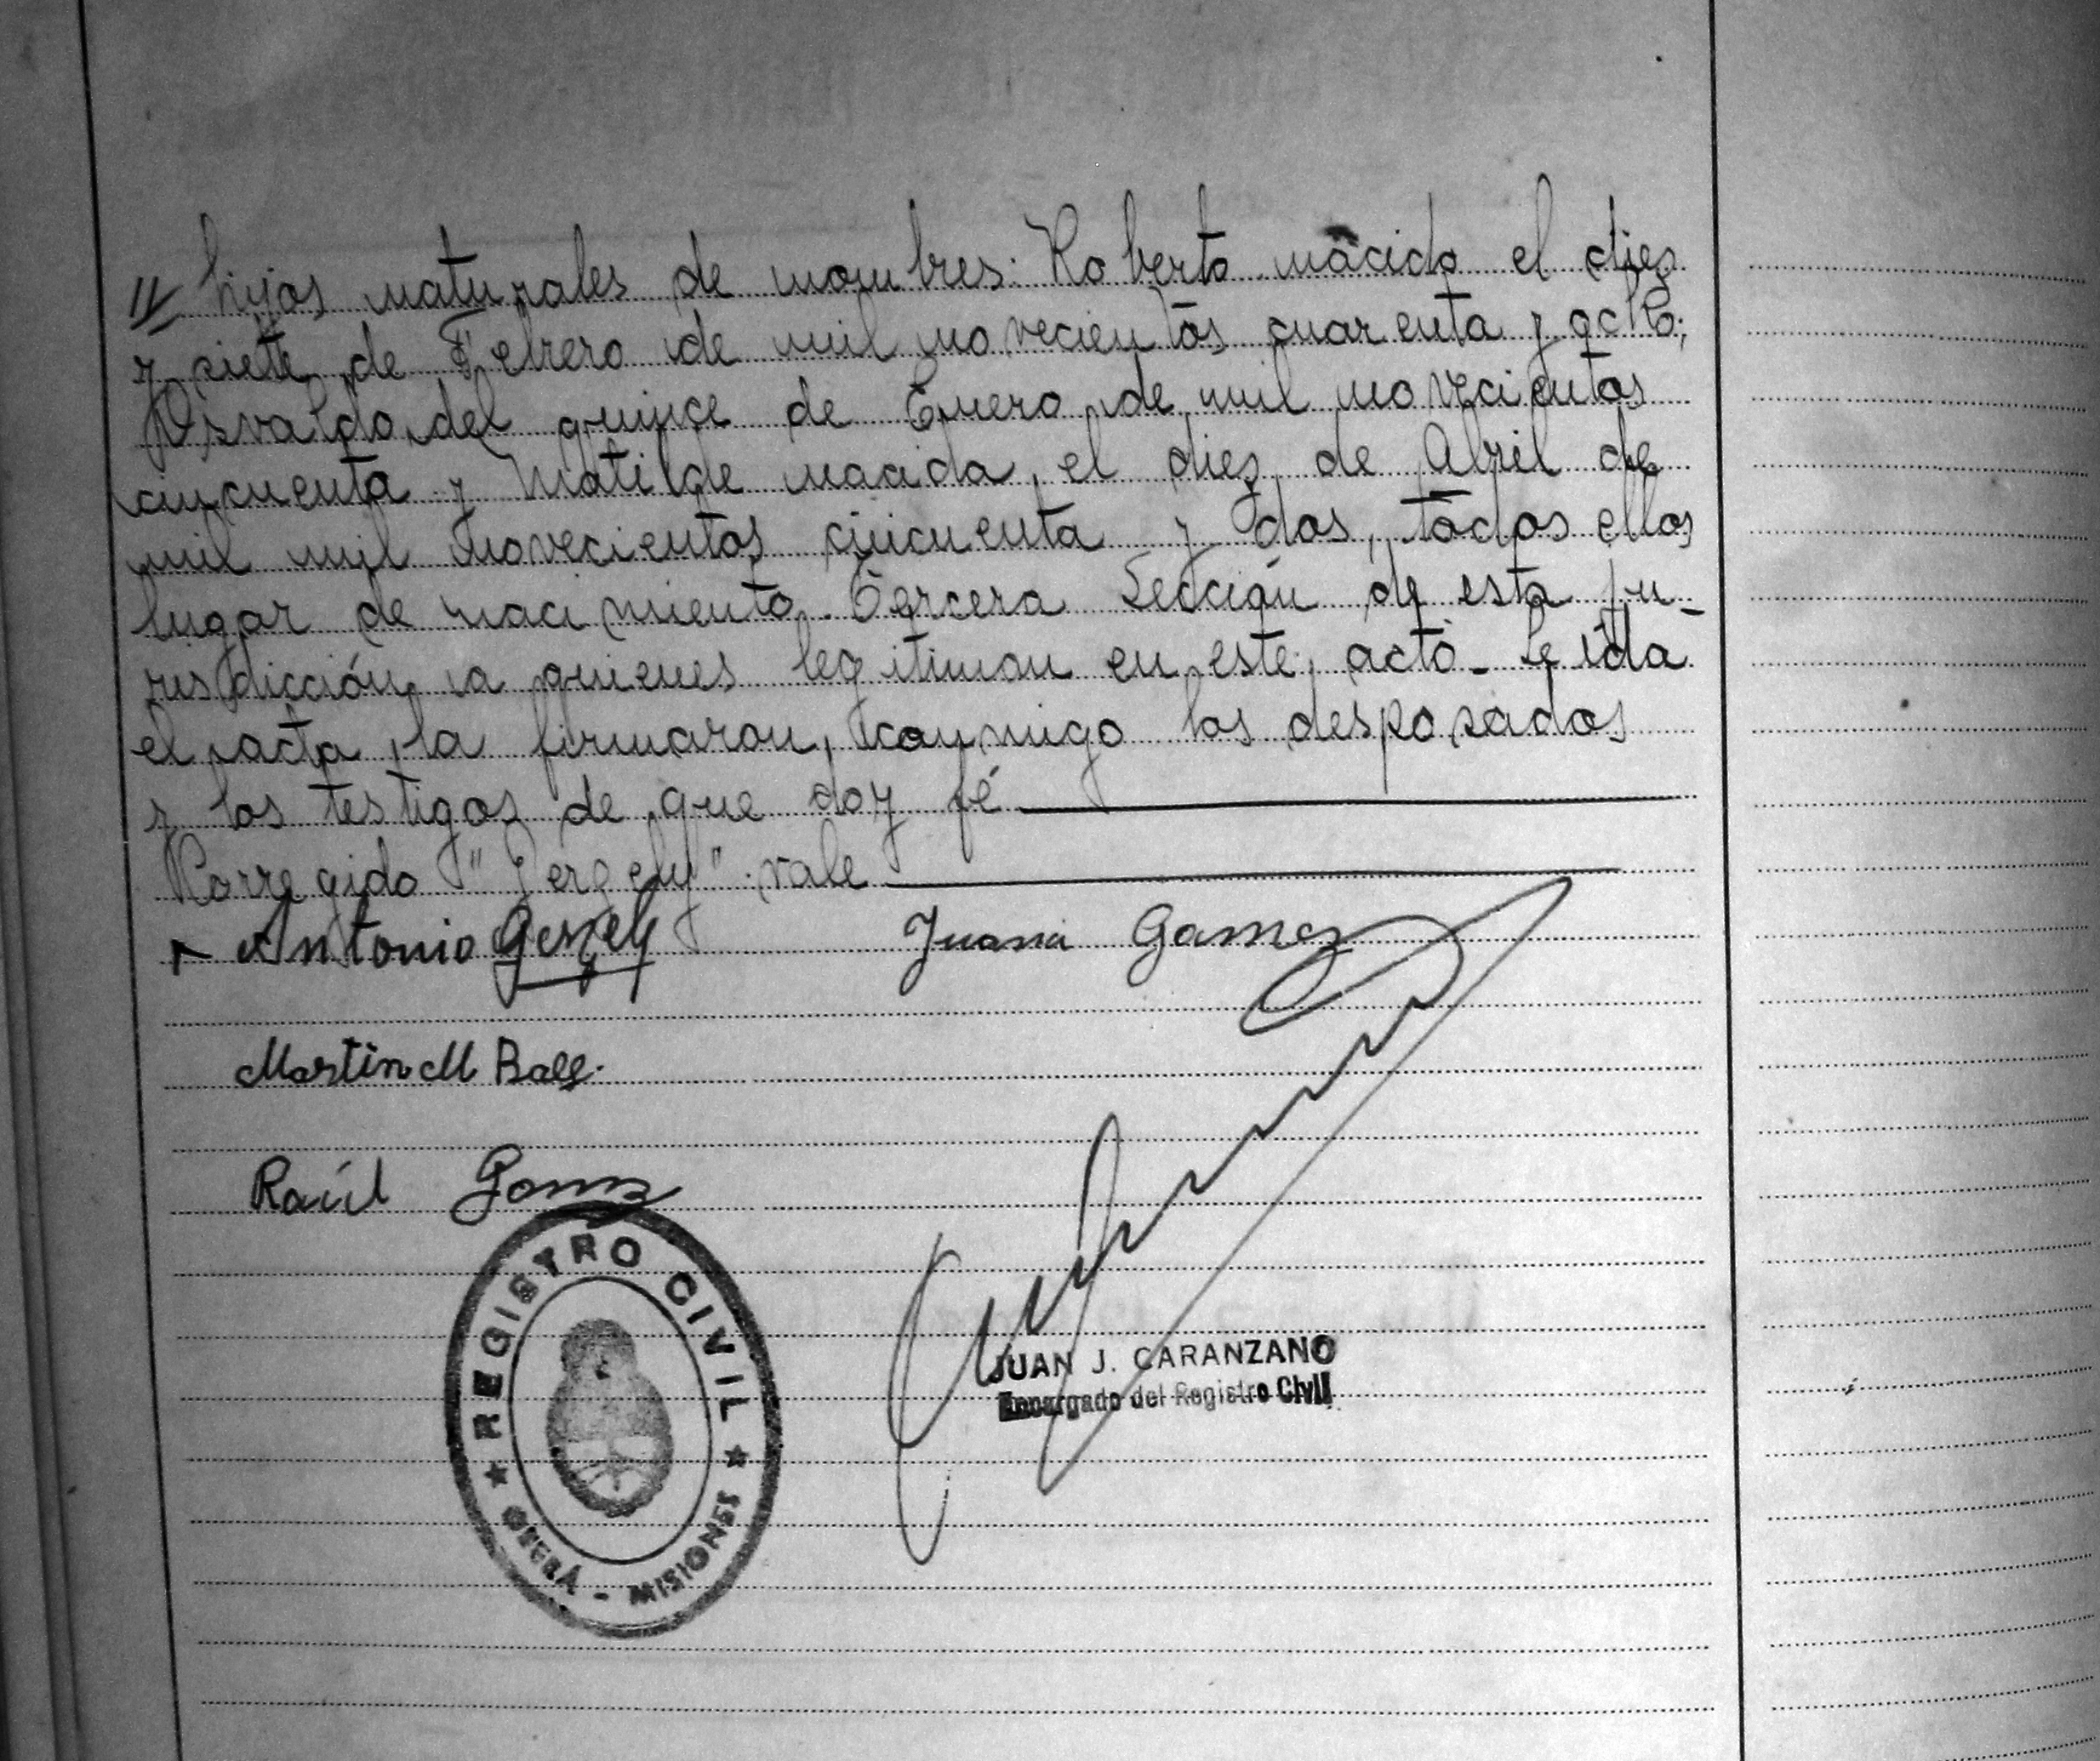 // hijos naturales de nombres: Roberto nacido el diez
y siete de Febrero de mil novecientos cuarenta y ocho;
Osvaldo del quince de Enero de mil novecientos
cincuenta y Matilde nacida el diez de Abril de
mil mil novecientos cincuenta y dos, todos ellos
lugar de nacimiento Tercera Sección de esta ju-
risdicción a quienes legitiman en este acto - Leída
el acta, la firmaron, conmigo los desposados
y los testigos de que doy fé
Corregido "Gergely" vale
Antonio Gergely Juana Gamez
Martin M
Raúl
REGISTRO CIVIL
OBERÁ - MISIONES
JUAN J. CARANZANO
Encargado del Registro Civil